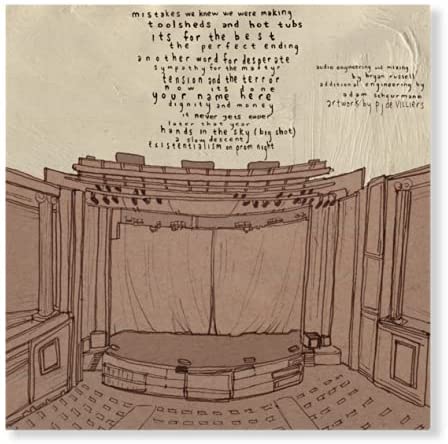 mistakes we knew we were making
toolsheds and hot tubs
its for the best
the perfect ending
another word for desperate
sympathy for the martyr
tension and the terror
now its done
your name here
dignity and money
it never gets easy
later that year
hands in the sky (big shot)
a slow descent
existentialism on prom night
audio engineering and mixing
by bryan russell
additional engineering by
adam scheurmann
artwork by pj de villiers